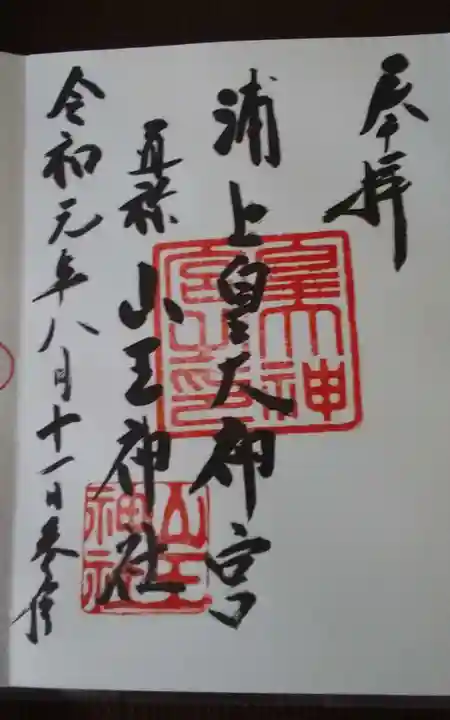 奉拝
浦上皇大神宮
直禄
山王神社
令和元年八月十一日参拝
皇大神宮之印
山王神社